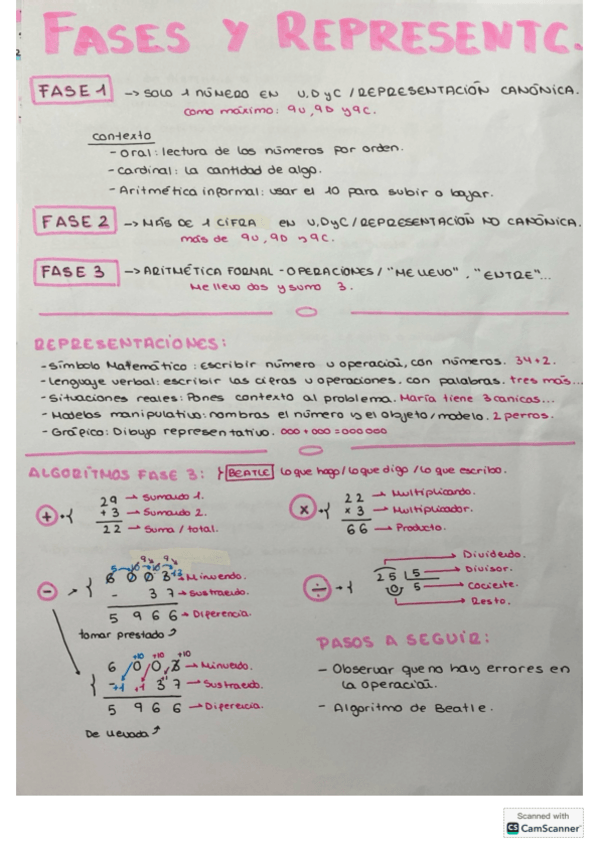 FASES Y REPRESENTC.
FASE 1 -> SOLO 1 NÚMERO EN U, D y C / REPRESENTACIÓN CANÓNICA.
como máximo: 9U, 9D y 9C.
contexto
- Oral: lectura de los números por orden.
- Cardinal: la cantidad de algo.
- Aritmética informal: usar el 10 para subir o bajar.
FASE 2 -> MÁS DE 1 CIFRA EN U, D y C / REPRESENTACIÓN NO CANÓNICA.
más de 9U, 9D y 9C.
FASE 3 -> ARITMÉTICA FORMAL - OPERACIONES / "ME LLEVO", "ENTRE"...
Me llevo dos y sumo 3.
REPRESENTACIONES:
- Símbolo Matemático: escribir número u operación, con números. 34+2.
- Lenguaje verbal: escribir las cifras u operaciones, con palabras. tres más...
- Situaciones reales: Pones contexto al problema. María tiene 3 canicas...
- Modelos manipulativo: nombras el número y el objeto/modelo. 2 perros.
- Gráfico: Dibujo representativo. 000 + 000 = 000 000
ALGORITMOS FASE 3: } BEATLE lo que hago / lo que digo / lo que escribo.
+ · { 29 -> Sumando 1.
+ 3 -> Sumando 2.
22 -> Suma / total.
x · { 22 -> Multiplicando.
x 3 -> Multiplicador.
66 -> Producto.
- -> { 6 0 0 3 -> Minuendo.
- 3 7 -> Sustraendo.
5 9 6 6 -> Diferencia.
tomar prestado
÷ · { 25 5
0 5
Dividendo.
Divisor.
Cociente.
Resto.
+10 +10 +10
6 0 0 3 -> Minuendo.
- +1 +1 3 7 -> Sustraendo.
5 9 6 6 -> Diferencia.
De llevada
PASOS A SEGUIR:
- Observar que no hay errores en
la operación.
- Algoritmo de Beatle.
Scanned with
CS CamScanner